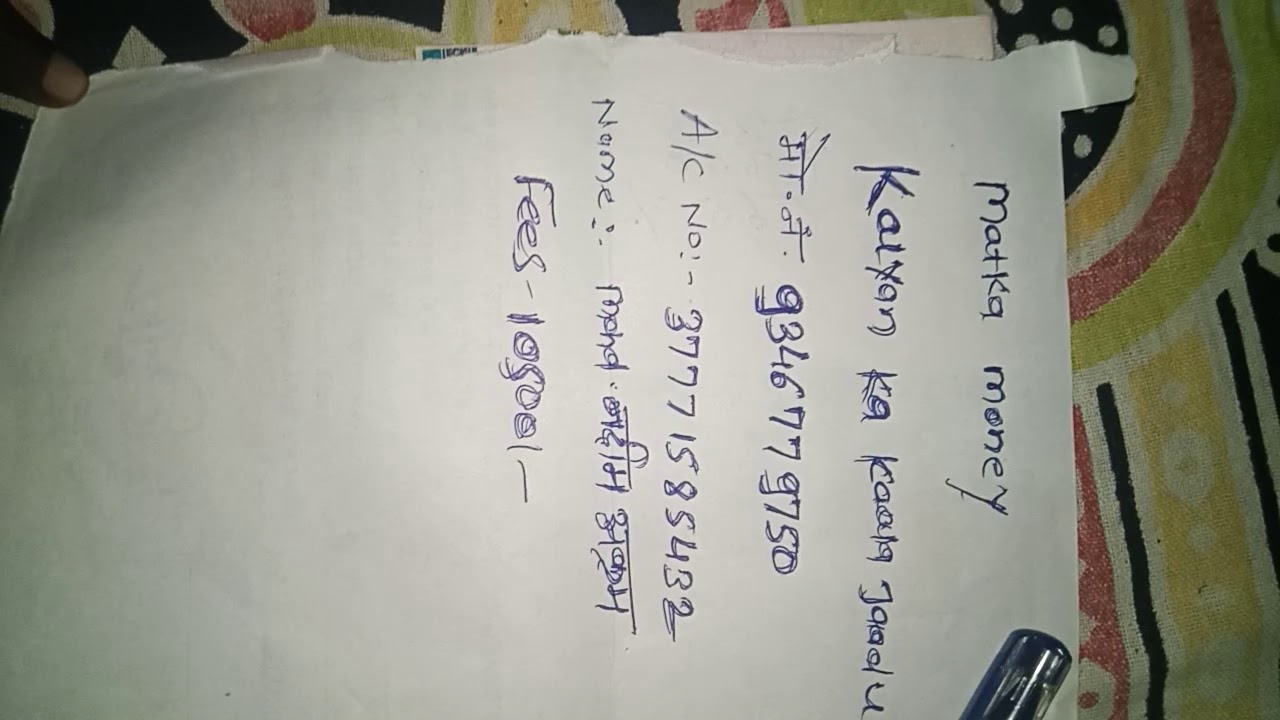 Matka money
Kalyan ka kaala Jaadu
मो. नं. 9346779750
A/C No:- 37771585432
Name:- Mohd. नदीम अकरम
Fees -